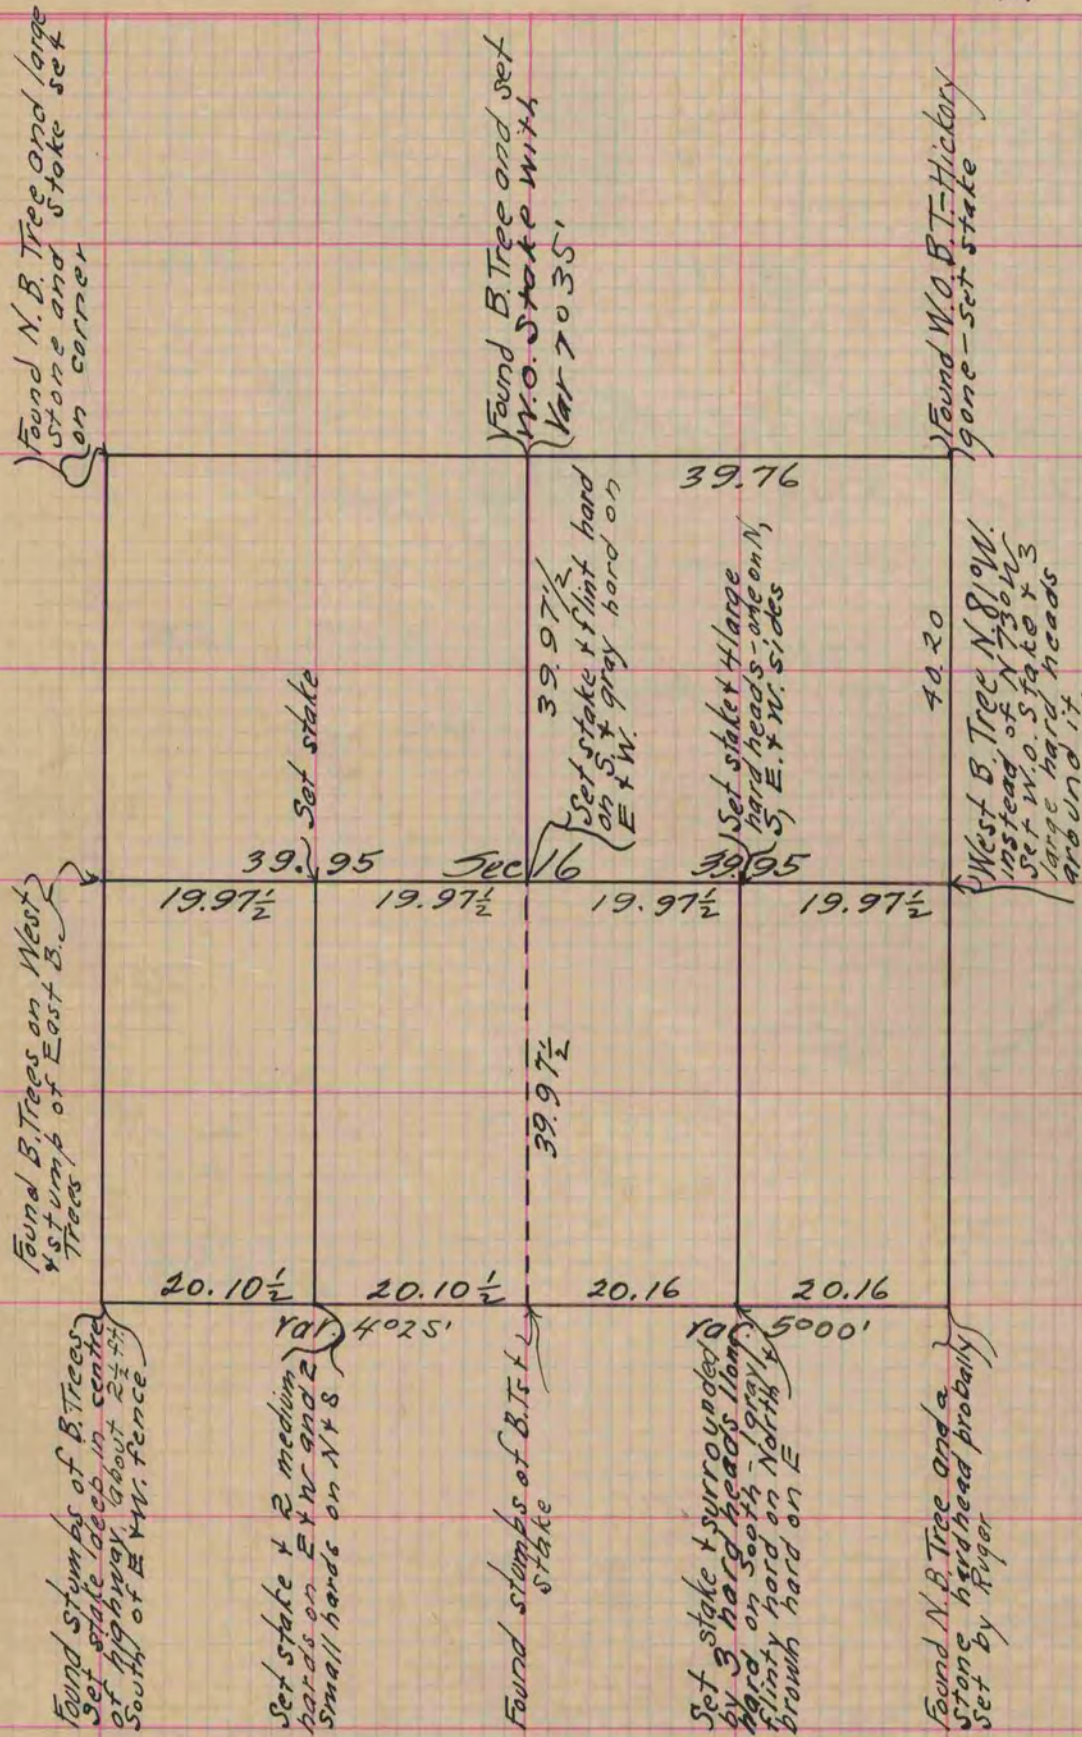 Found N. B. Tree and large
stone and stake set
on corner
Found B. Tree and set
W.O. Stake with
Var 7° 35'
Found W.O. B.T.-Hickory
gone - set stake
39.76
39.97 1/2
Set stake & flint hard
on S. & gray hard on
E & W.
Set stake & 4 large
hard heads - one on N,
S, E. & W. sides
40.20
West B. Tree N. 81° W.
instead of N 73° W
Set W.O. Stake & 3
large hard heads
around it
Set stake
39.95
Sec 16
39.95
19.97 1/2
19.97 1/2
19.97 1/2
19.97 1/2
Found B. Trees on West
& stump of East B.
Trees
39.97 1/2
20.10 1/2
20.10 1/2
20.16
20.16
Var. 4° 25'
Var. 5° 00'
Found stumps of B. Trees
Set stake deep in centre
of highway, about 2 1/2 ft.
South of E & W. fence
Set stake & 2 medium
hards on E & W and 2
small hards on N & S
Found stumps of B. Ts &
stake
Set stake & surrounded
by 3 hard heads 1 long
hard on South - 1 gray
flinty hard on North &
brown hard on E
Found N. B. Tree and a
stone hardhead probally
set by Ruger